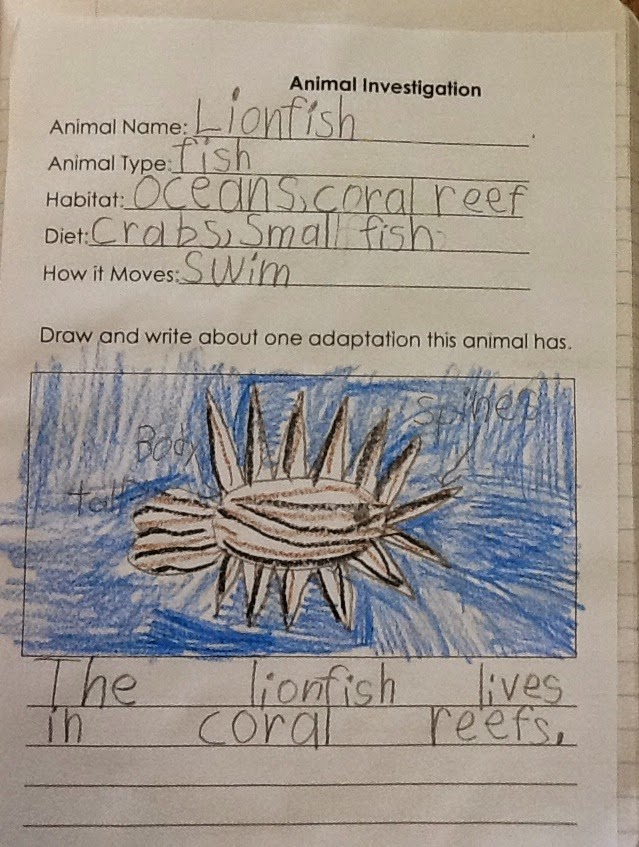 Animal Investigation
Animal Name: Lionfish
Animal Type: fish
Habitat: oceans, coral reef
Diet: crabs, small fish
How it Moves: swim
Draw and write about one adaptation this animal has.
spines
Body
tail
The lionfish lives
in coral reefs.